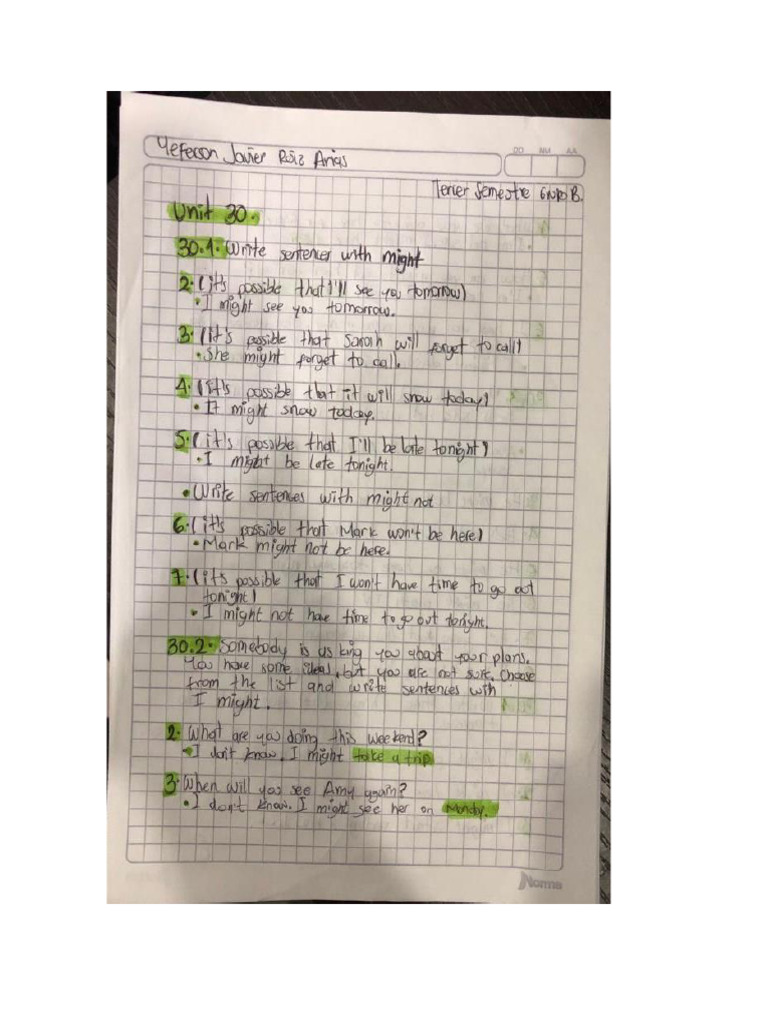 DD MM AA
Yeferson Javier Ruiz Arias
Tercer Semestre Grupo B.
Unit 30.
30.1. Write sentences with might
2. (it's possible that I'll see you tomorrow)
• I might see you tomorrow.
3. (It's possible that Sarah will forget to call)
• She might forget to call.
4. (It's possible that it will snow today)
• It might snow today.
5. (it's possible that I'll be late tonight)
• I might be late tonight.
• Write sentences with might not
6. (it's possible that Mark won't be here)
• Mark might not be here.
7. (it's possible that I won't have time to go out
tonight)
• I might not have time to go out tonight.
30.2. Somebody is us king you about your plans.
You have some ideas, but you are not sure. Choose
from the list and write sentences with
I might.
2. What are you doing this weekend?
• I don't know. I might take a trip
3. When will you see Amy again?
• I don't know. I might see her on Monday.
Norma